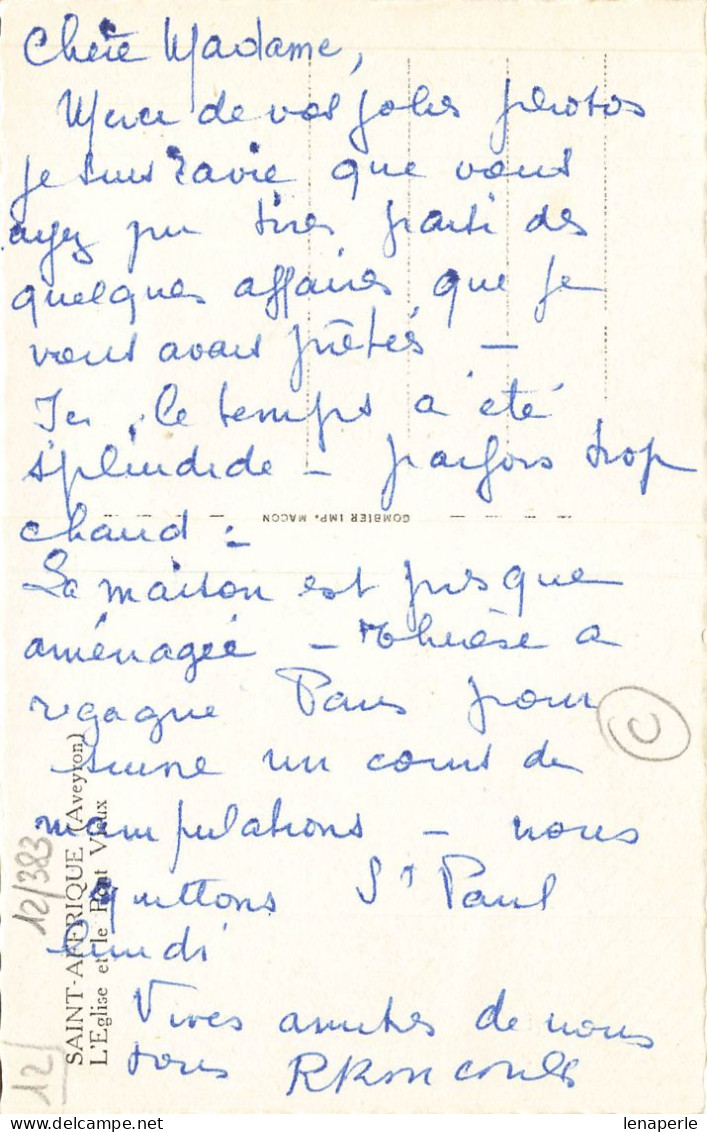 Chère Madame,
Merci de vos jolies photos
je suis ravie que vous
ayez pu tirer parti des
quelques affaires que je
vous avais prêtées —
Ici, le temps a été
splendide — parfois trop
chaud.
La maison est presque
aménagée — Thérèse a
regagné Paris pour
suivre un cours de
manipulations — nous
quittons St Paul
lundi
Vives amitiés de nous
tous
COMBIER IMP. MACON
SAINT-AFFRIQUE (Aveyron)
L'Eglise et le Pont Vieux
12/383
12/
C
lenaperle